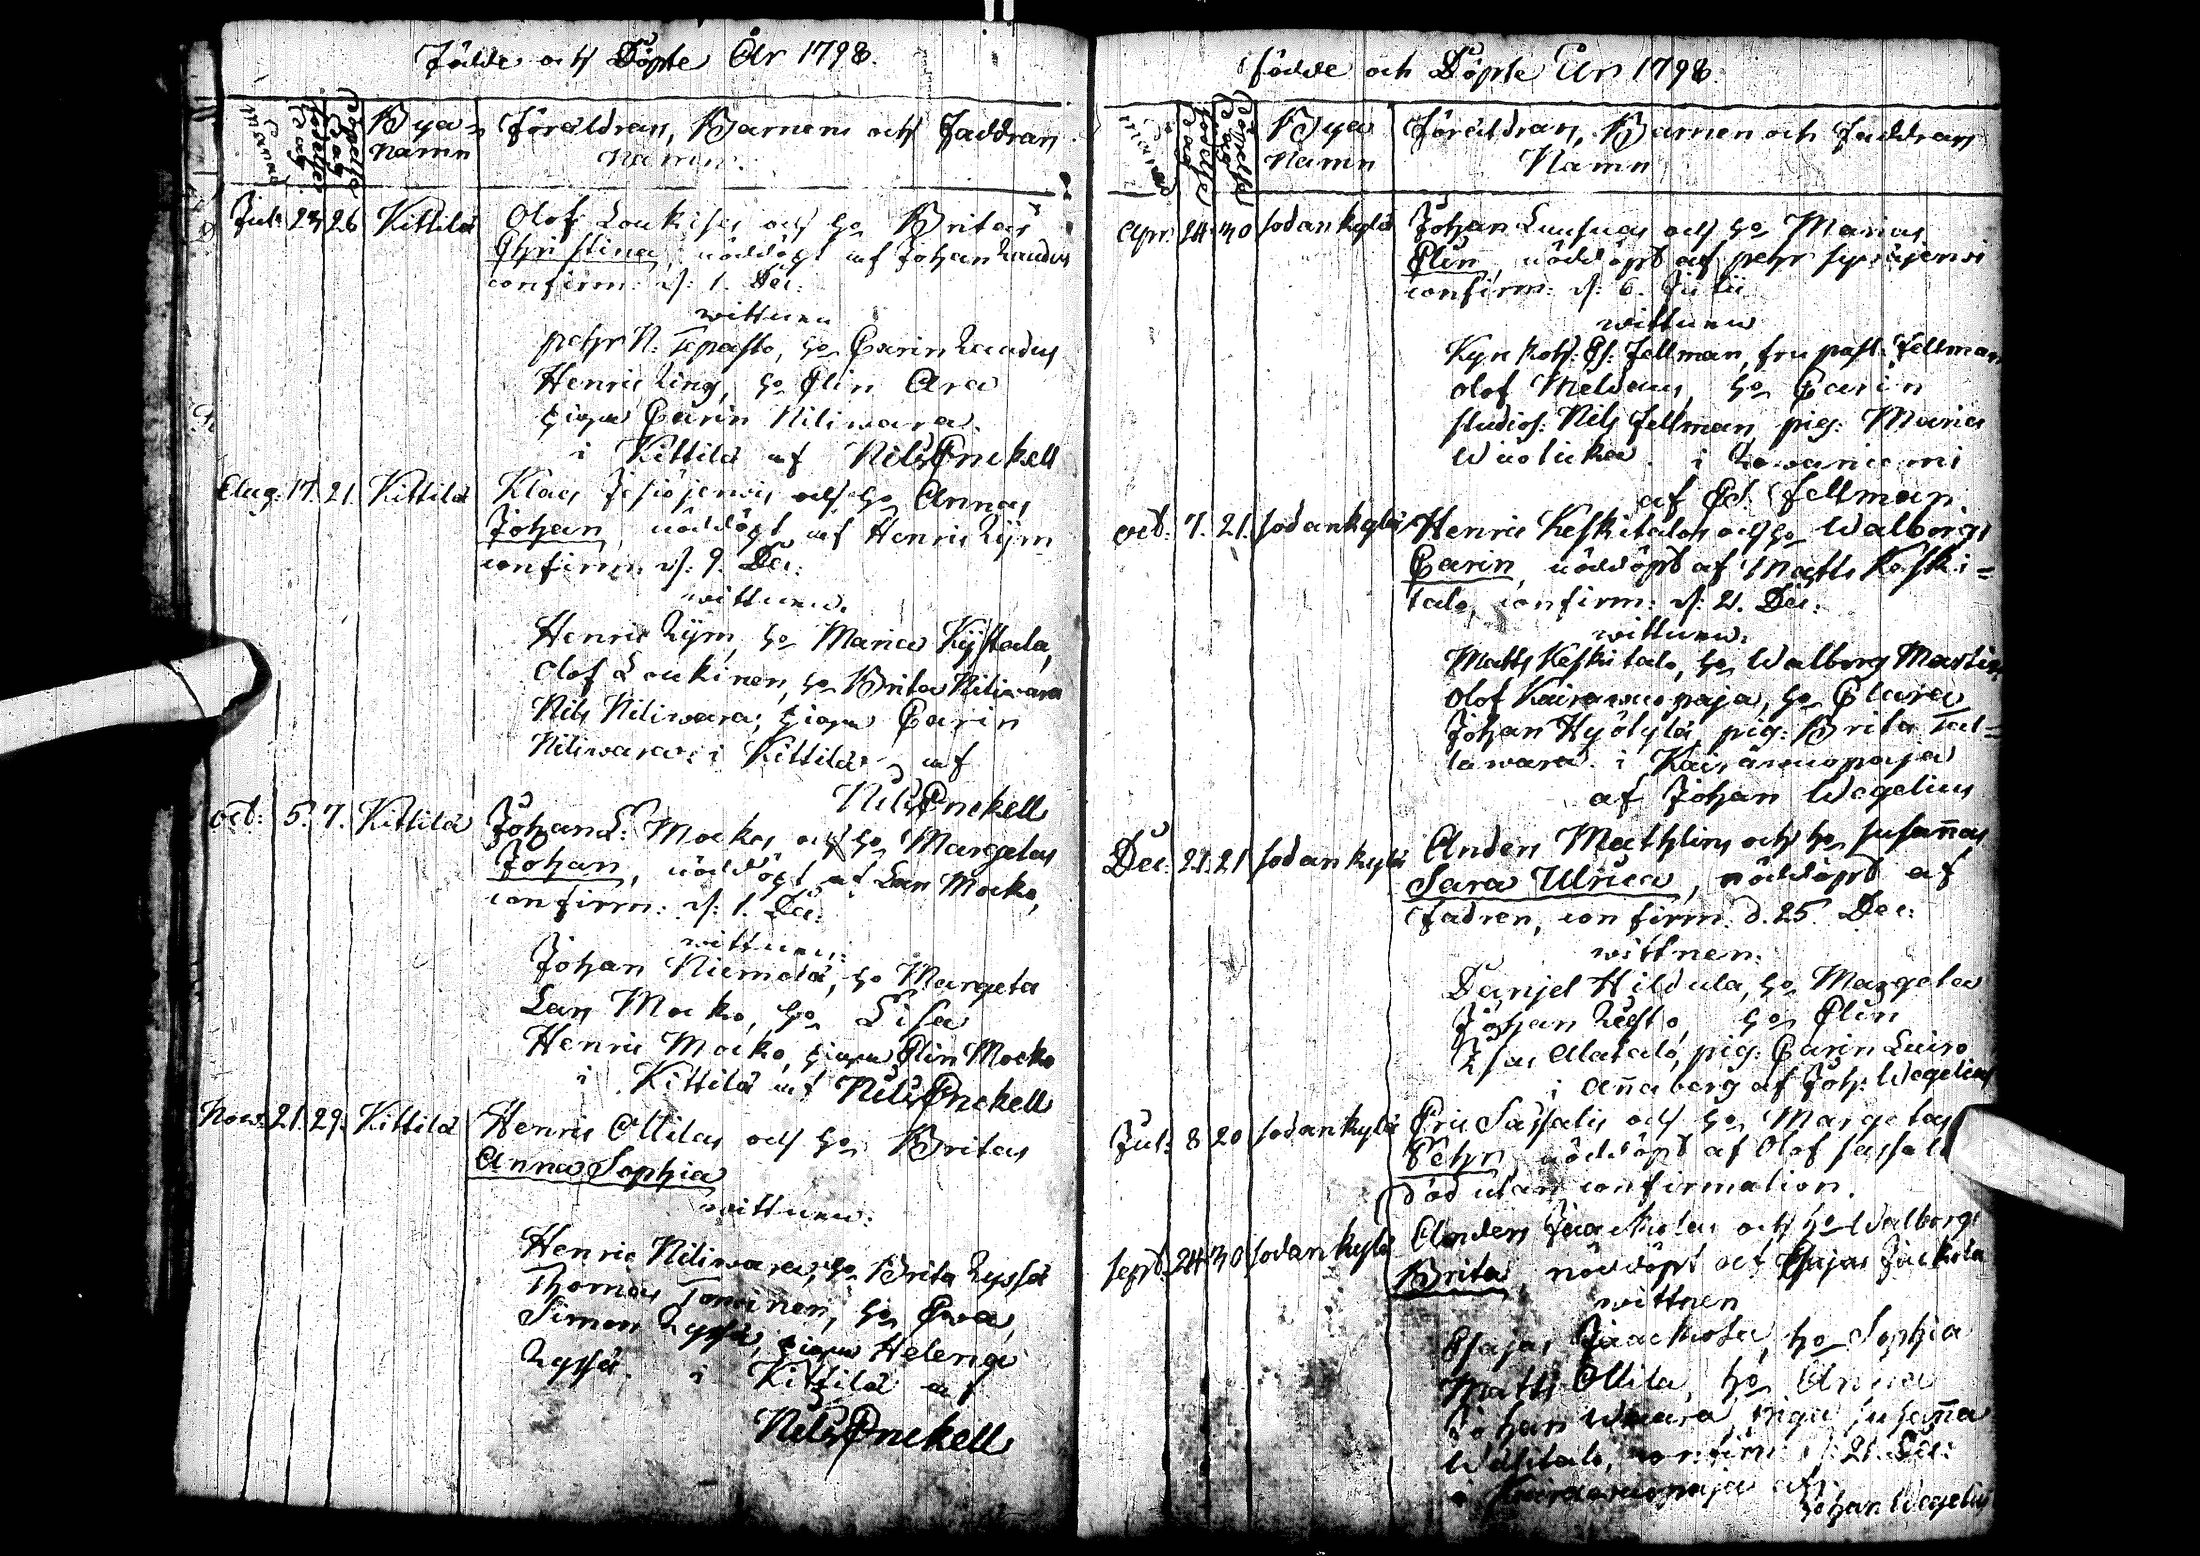 Födde och Döpte År 1798.
Månad
Födelse Dag
Döpelse Dag
Bya namn
Föräldrars, Barnens och Faddrars
namn.
Jul: 23 26 Kittilä Olof Loukises och ho Britas
Christina, nöddöpt af Johan
confirm: d: 1. Dec:
wittnen
Pehr N: Tepasto, ho Carin
Henric Ring, ho Elin Ara
piga Carin Niliwara.
i Kittilä af Nils Enckell
Aug: 17. 21. Kittilä Klas Jesiöjerwis och ho Annas
Johan, nöddöpt af Henric
confirm: d: 9. Dec:
wittnen.
Henric ho Maria
Olof Loukinen, ho Brita Niliwara
Nils Niliwara, piga Carin
Niliwara. i Kittilä af
Nils Enckell
oct: 5. 7. Kittilä Johan L: Mockos och ho Margetas
Johan, nöddöpt af Lars Mocko,
confirm: d: 1. Dec:
wittnen:
Johan Niemelä, ho Margeta
Lars Mocko, ho Lisa
Henric Mocko, piga Elin Mocko
i Kittilä af Nils Enckell
Now: 21. 29. Kittilä Henric Ollilas och ho Britas
Anna Sophia
wittnen:
Henric Niliwara, ho Brita
Thomas Toroinen, ho Ewa,
Simon piga Helena
i Kittilä af
Nils Enckell
Födde och Döpte År 1798
Månad
Födelse Dag
Döpelse Dag
Bya Namn
Föräldrars, Barnen och Faddrars
Namn
Apr: 24. 30 Sodankylä Johan Luusuas och ho Marias
Elin, nöddöpt af Pehr
confirm: d: 6. Julii
wittnen
Kyrkoh: Es: Fellman, fru past: Fellman
Olof Meldaus, ho Carin
Studios: Nils Fellman, pig: Maria
i Rowaniemi
af Es: Fellman
oct: 7. 21. Sodankylä Henric Keskitalos och ho Walborgs
Carin, nöddöpt af Matts Keski=
talo, confirm: d: 21. Dec:
wittnen.
Matts Keskitalo, ho Walborg Martin
Olof Kairawuopaja, ho Clara
Johan Hyötylä, pig: Brita Tal=
lawara. i Kairawuopaja
af Johan Wegelius
Dec: 21 Sodankylä Anders Mathlins och ho Susannas
Sara Ulrica, nöddöpt af
Fadren, confirm: d. 25. Dec:
wittnen.
Danjel Hildula, ho Margeta
Johan ho Elin
Alatalo, pig: Carin Luiro
i Annaberg af Joh: Wegelius
Jul: 8 20 Sodankylä Eric Sassalis och ho Margetas
Pehr, nöddöpt af Olof Sassali
död utan confirmation.
Sept: 24 30 Sodankylä Anders Jaackolas och ho Walborgs
Brita, nöddöpt af Esajas Jackola
wittnen
Esajas Jaackola, ho Sophia
Matts Ollila, ho Anna
Johan Waara, piga Susanna
confirm: d: 21. Dec:
i Kairawuopaja af
Johan Wegelius